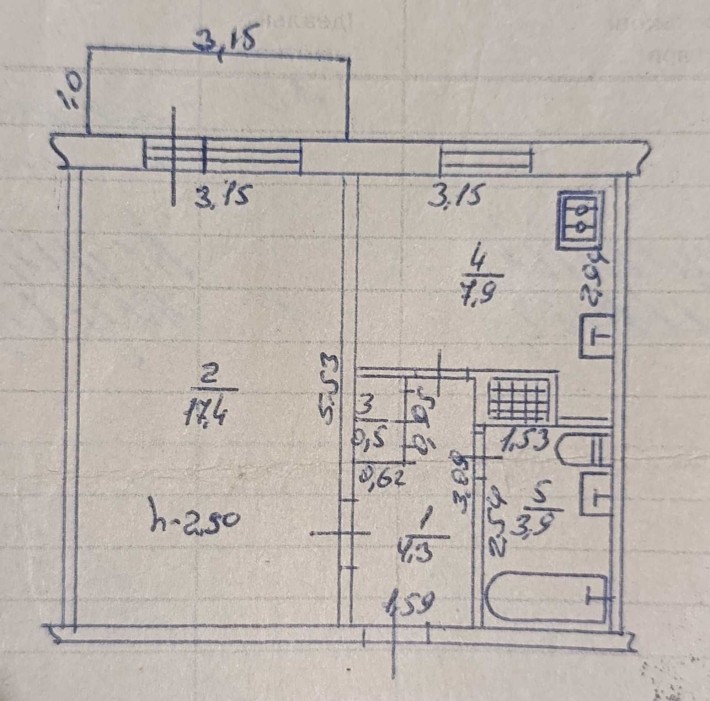 3,15
1,0
3,15
3,15
4
7,9
2,94
2
17,4
5,53
3
0,5
0,95
0,62
1,53
3,09
5
3,9
2,54
h-2,50
1
4,3
1,59